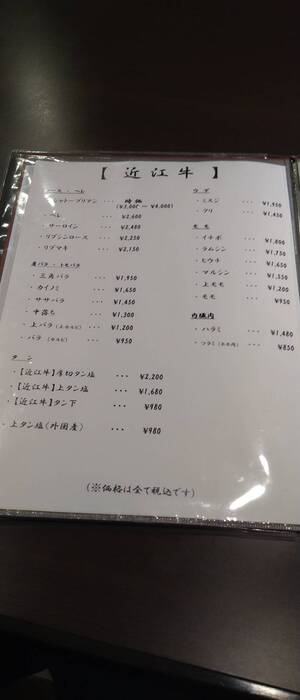 【 近江牛 】
ロース・ヘレ
・シャトーブリアン ・・・ 時価
(¥3,000 〜 ¥4,000)
・ヘレ ・・・ ¥2,600
・サーロイン ・・・ ¥2,480
・リブシンロース ・・・ ¥2,250
・リブマキ ・・・ ¥2,150
肩バラ・トモバラ
・三角バラ ・・・ ¥1,950
・カイノミ ・・・ ¥1,650
・ササバラ ・・・ ¥1,450
・中落ち ・・・ ¥1,300
・上バラ(上カルビ) ・・・ ¥1,200
・バラ(カルビ) ・・・ ¥950
タン
・【近江牛】厚切タン塩 ・・・ ¥2,200
・【近江牛】上タン塩 ・・・ ¥1,680
・【近江牛】タン下 ・・・ ¥980
・上タン塩(外国産) ・・・ ¥980
ウデ
・ミスジ ・・・ ¥1,950
・クリ ・・・ ¥1,450
モモ
・イチボ ・・・ ¥1,800
・ラムシン ・・・ ¥1,750
・ヒウチ ・・・ ¥1,650
・マルシン ・・・ ¥1,350
・上モモ ・・・ ¥1,200
・モモ ・・・ ¥950
内臓肉
・ハラミ ・・・ ¥1,480
・ツラミ(ホホ肉) ・・・ ¥850
(※価格は全て税込です)